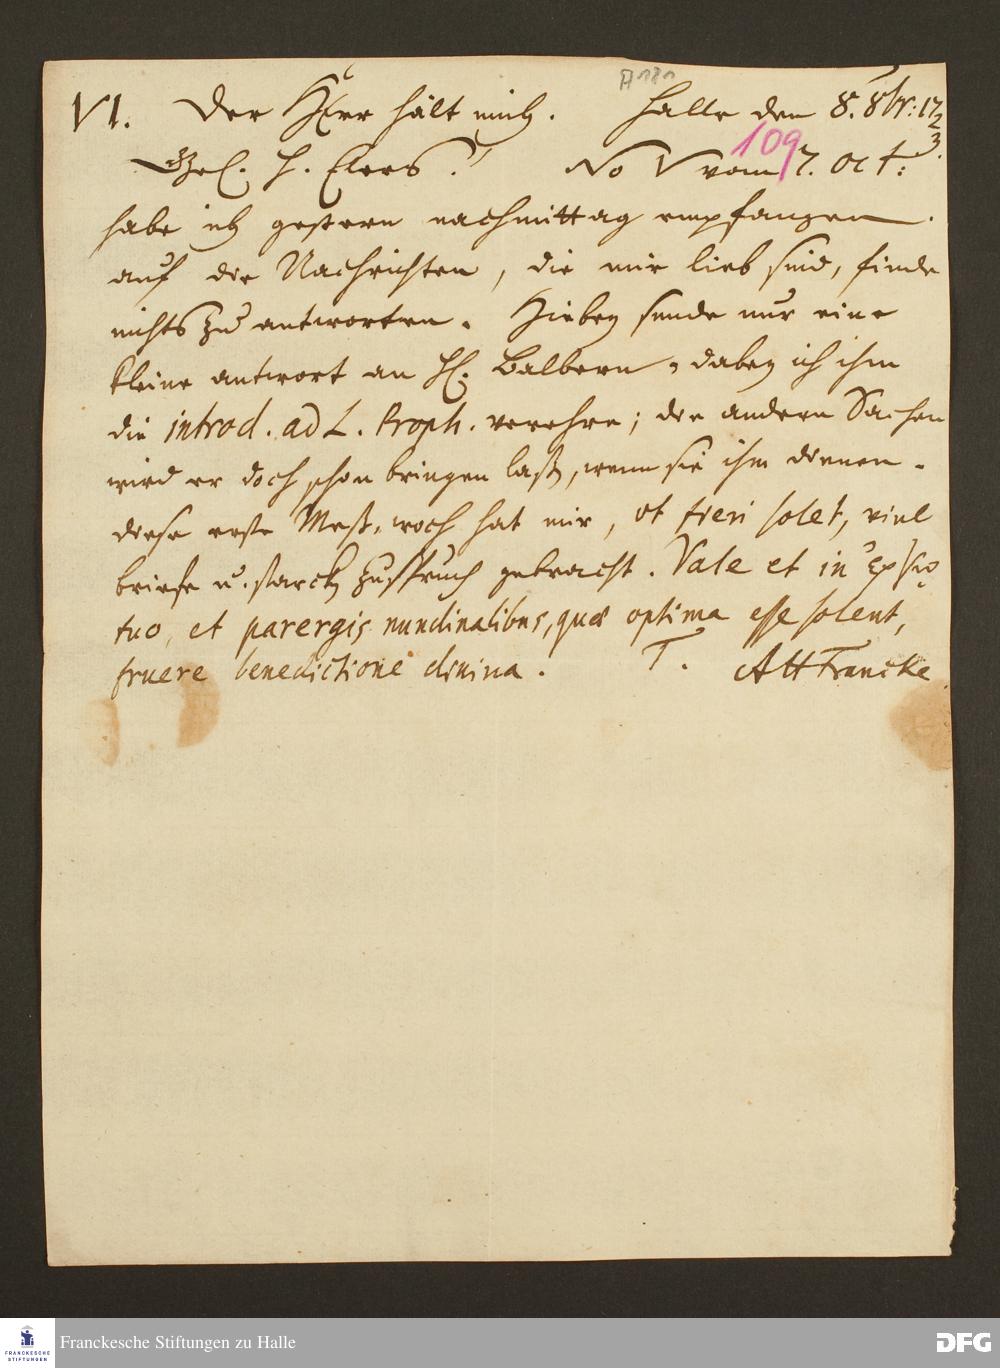 A 181
VI. Der HErr hält mich. Halle den 8. 8br: 1723.
109
Gel. H. Elers! No V vom 7. Oct:
habe ich gestern nachmittag empfangen.
auf die Nachrichten, die mir lieb sind, finde
nichts zu antworten. Hiebey sende nur eine
kleine antwort an H. Balbern, dabey ich ihm
die introd. ad L. Proph. verehre; die andern Sachen
wird er doch schon bringen laß, wenn sie ihm dienen.
diese erste Meß-woch hat mir, ut fieri solet, viel
briefe u. starck Zuspruch gebracht. Vale et in
tuo, et parergis nundinalibus, quæ optima esse solent,
fruere benedictione divina. T. AHFrancke
FRANCKESCHE STIFTUNGEN
Franckesche Stiftungen zu Halle
DFG